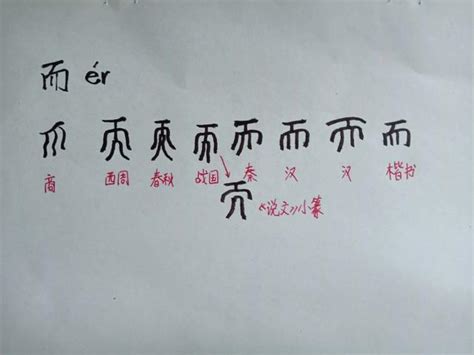 而 ér
而 而 而 而 而 而 而 而
商 西周 春秋 战国 秦 汉 汉 楷书
而 《说文》小篆